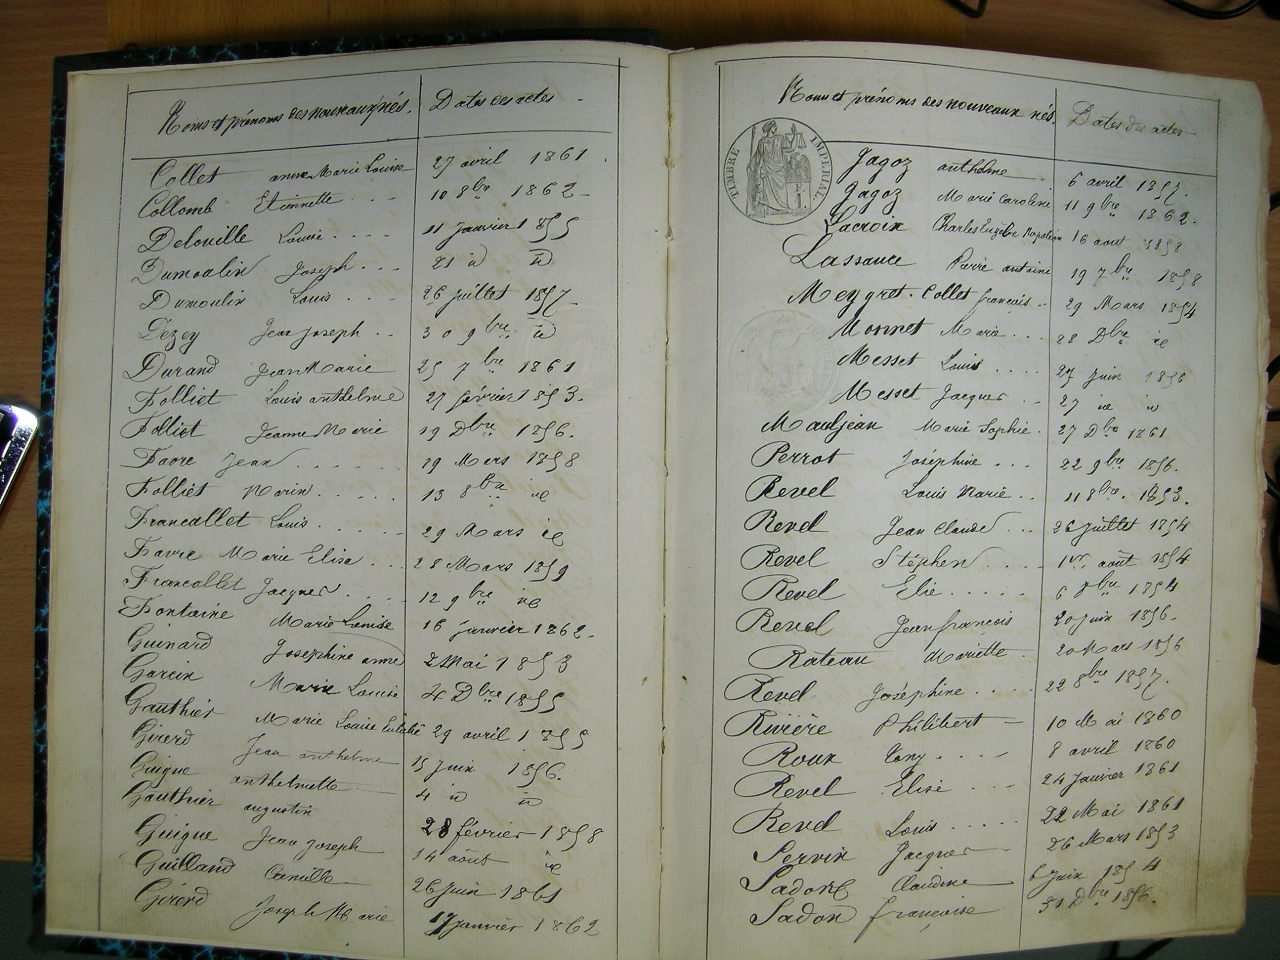 Noms et prénoms des nouveaux nés. Dates des actes
Collet anne Marie Louise 27 avril 1861.
Collomb Etiennette 10 8bre 1862
Delouille Louise 11 janvier 1855
Dumoulin Joseph 21 id id
Dumoulin Louis 26 juillet 1857
Dézey Jean Joseph 30 9bre id
Durand Jean Marie 25 7bre 1861
Folliet Louis anthelme 27 février 1853.
Folliet Jeanne Marie 19 Dbre 1856.
Favre Jean 19 Mars 1858
Folliet Marie 13 8bre id
Francallet Louis 29 Mars id
Favre Marie Elisa 28 Mars 1859
Francollet Jacques 12 9bre id
Fontaine Marie Louise 16 janvier 1862.
Guinard Josephine anne 2 Mai 1853
Garcin Marie Louise Dbre 1855
Gauthier Marie Louise 29 avril 1855
Girerd Jean anthelme 15 juin 1856.
Guigue anthelmette 4 id id
Gauthier augustin 28 février 1858
Guigue Jean Joseph 14 août id
Guilland Camille 26 juin 1861
Girerd Joseph Marie 17 janvier 1862
Noms et prénoms des nouveaux nés. Dates des actes
TIMBRE IMPERIAL
Jagoz anthelme 6 avril 1857.
Jagoz Marie Caroline 11 9bre 1862.
Lacroix Charles Eugène Napoléon 16 aout 1858
Lassauce Pierre antoine 19 7bre 1858
Meygret. Collet françois 29 Mars 1854
Monnet Marie 28 Dbre id
Messet Louis 27 juin 1856
Messet Jacques 27 id id
Mauljean Marie Sophie. 27 Dbre 1861
Perrot Joséphine 22 9bre 1856.
Revel Louis Marie 11 8bre. 1853.
Revel Jean Claude 26 juillet 1854
Revel Stéphen 1er août 1854
Revel Elie 6 8bre 1854
Revel Jean françois 20 juin 1856.
Rateau Mariette 20 Mars 1856
Revel Joséphine 22 8bre 1857.
Rivière Philibert 10 Mai 1860
Roux Tony 8 avril 1860
Revel Elise 24 janvier 1861
Revel Louis 22 Mai 1861
Servin Jacques 26 Mars 1853
Claudine 6 juin 1854
Sadon françoise 31 Dbre 1856.